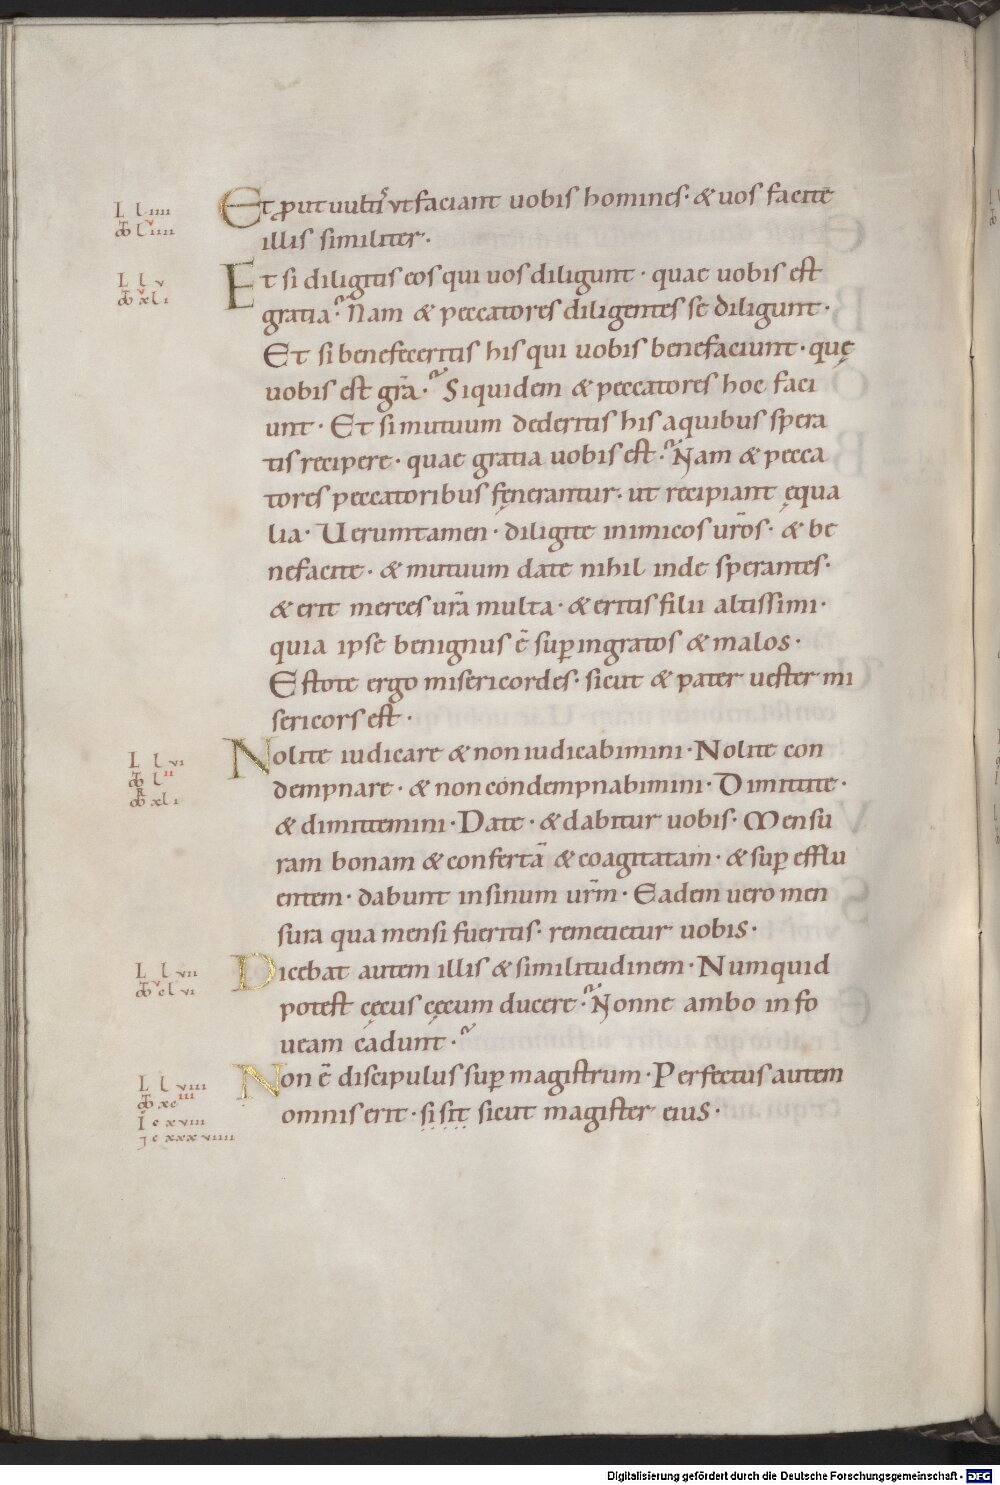 L l iiii
Et ꝓut uultis̄ ut faciant uobis homines· & uos facite
illis similiter·
L l v
Et si diligitis eos qui uos diligunt· quae uobis est
gratia? Nam & peccatores diligentes se diligunt·
Et si benefeceritis his qui uobis benefaciunt· quę
uobis est gr̄a? Siquidem & peccatores hoc faci
unt· Et si mutuum dederitis his a quibus spera
tis recipere· quae gratia uobis est? Nam & pecca
tores peccatoribus fęnerantur· ut recipiant ęqua
lia· Uerumtamen· diligite inimicos ur̄os· & be
nefacite· & mutuum date nihil inde sperantes·
& erit merces ur̄a multa· & eritis filii altissimi·
quia ipse benignus ē suꝑ ingratos & malos·
Estote ergo misericordes· sicut & pater uester mi
sericors est·
L l vi
Nolite iudicare & non iudicabimini· Nolite con
dempnare· & non condempnabimini· Dimittite·
& dimittemini· Date· & dabitur uobis· Mensu
ram bonam & confertā & coagitatam· & suꝑ efflu
entem· dabunt in sinum ur̄m· Eadem uero men
sura qua mensi fueritis· remetietur uobis·
L l vii
Dicebat autem illis & similitudinem· Numquid
potest cęcus cęcum ducere? Nonne ambo in fo
ueam cadunt?
L l viii
Non ē discipulus suꝑ magistrum· Perfectus autem
omnis erit· si sit sicut magister eius·
Digitalisierung gefördert durch die Deutsche Forschungsgemeinschaft - DFG